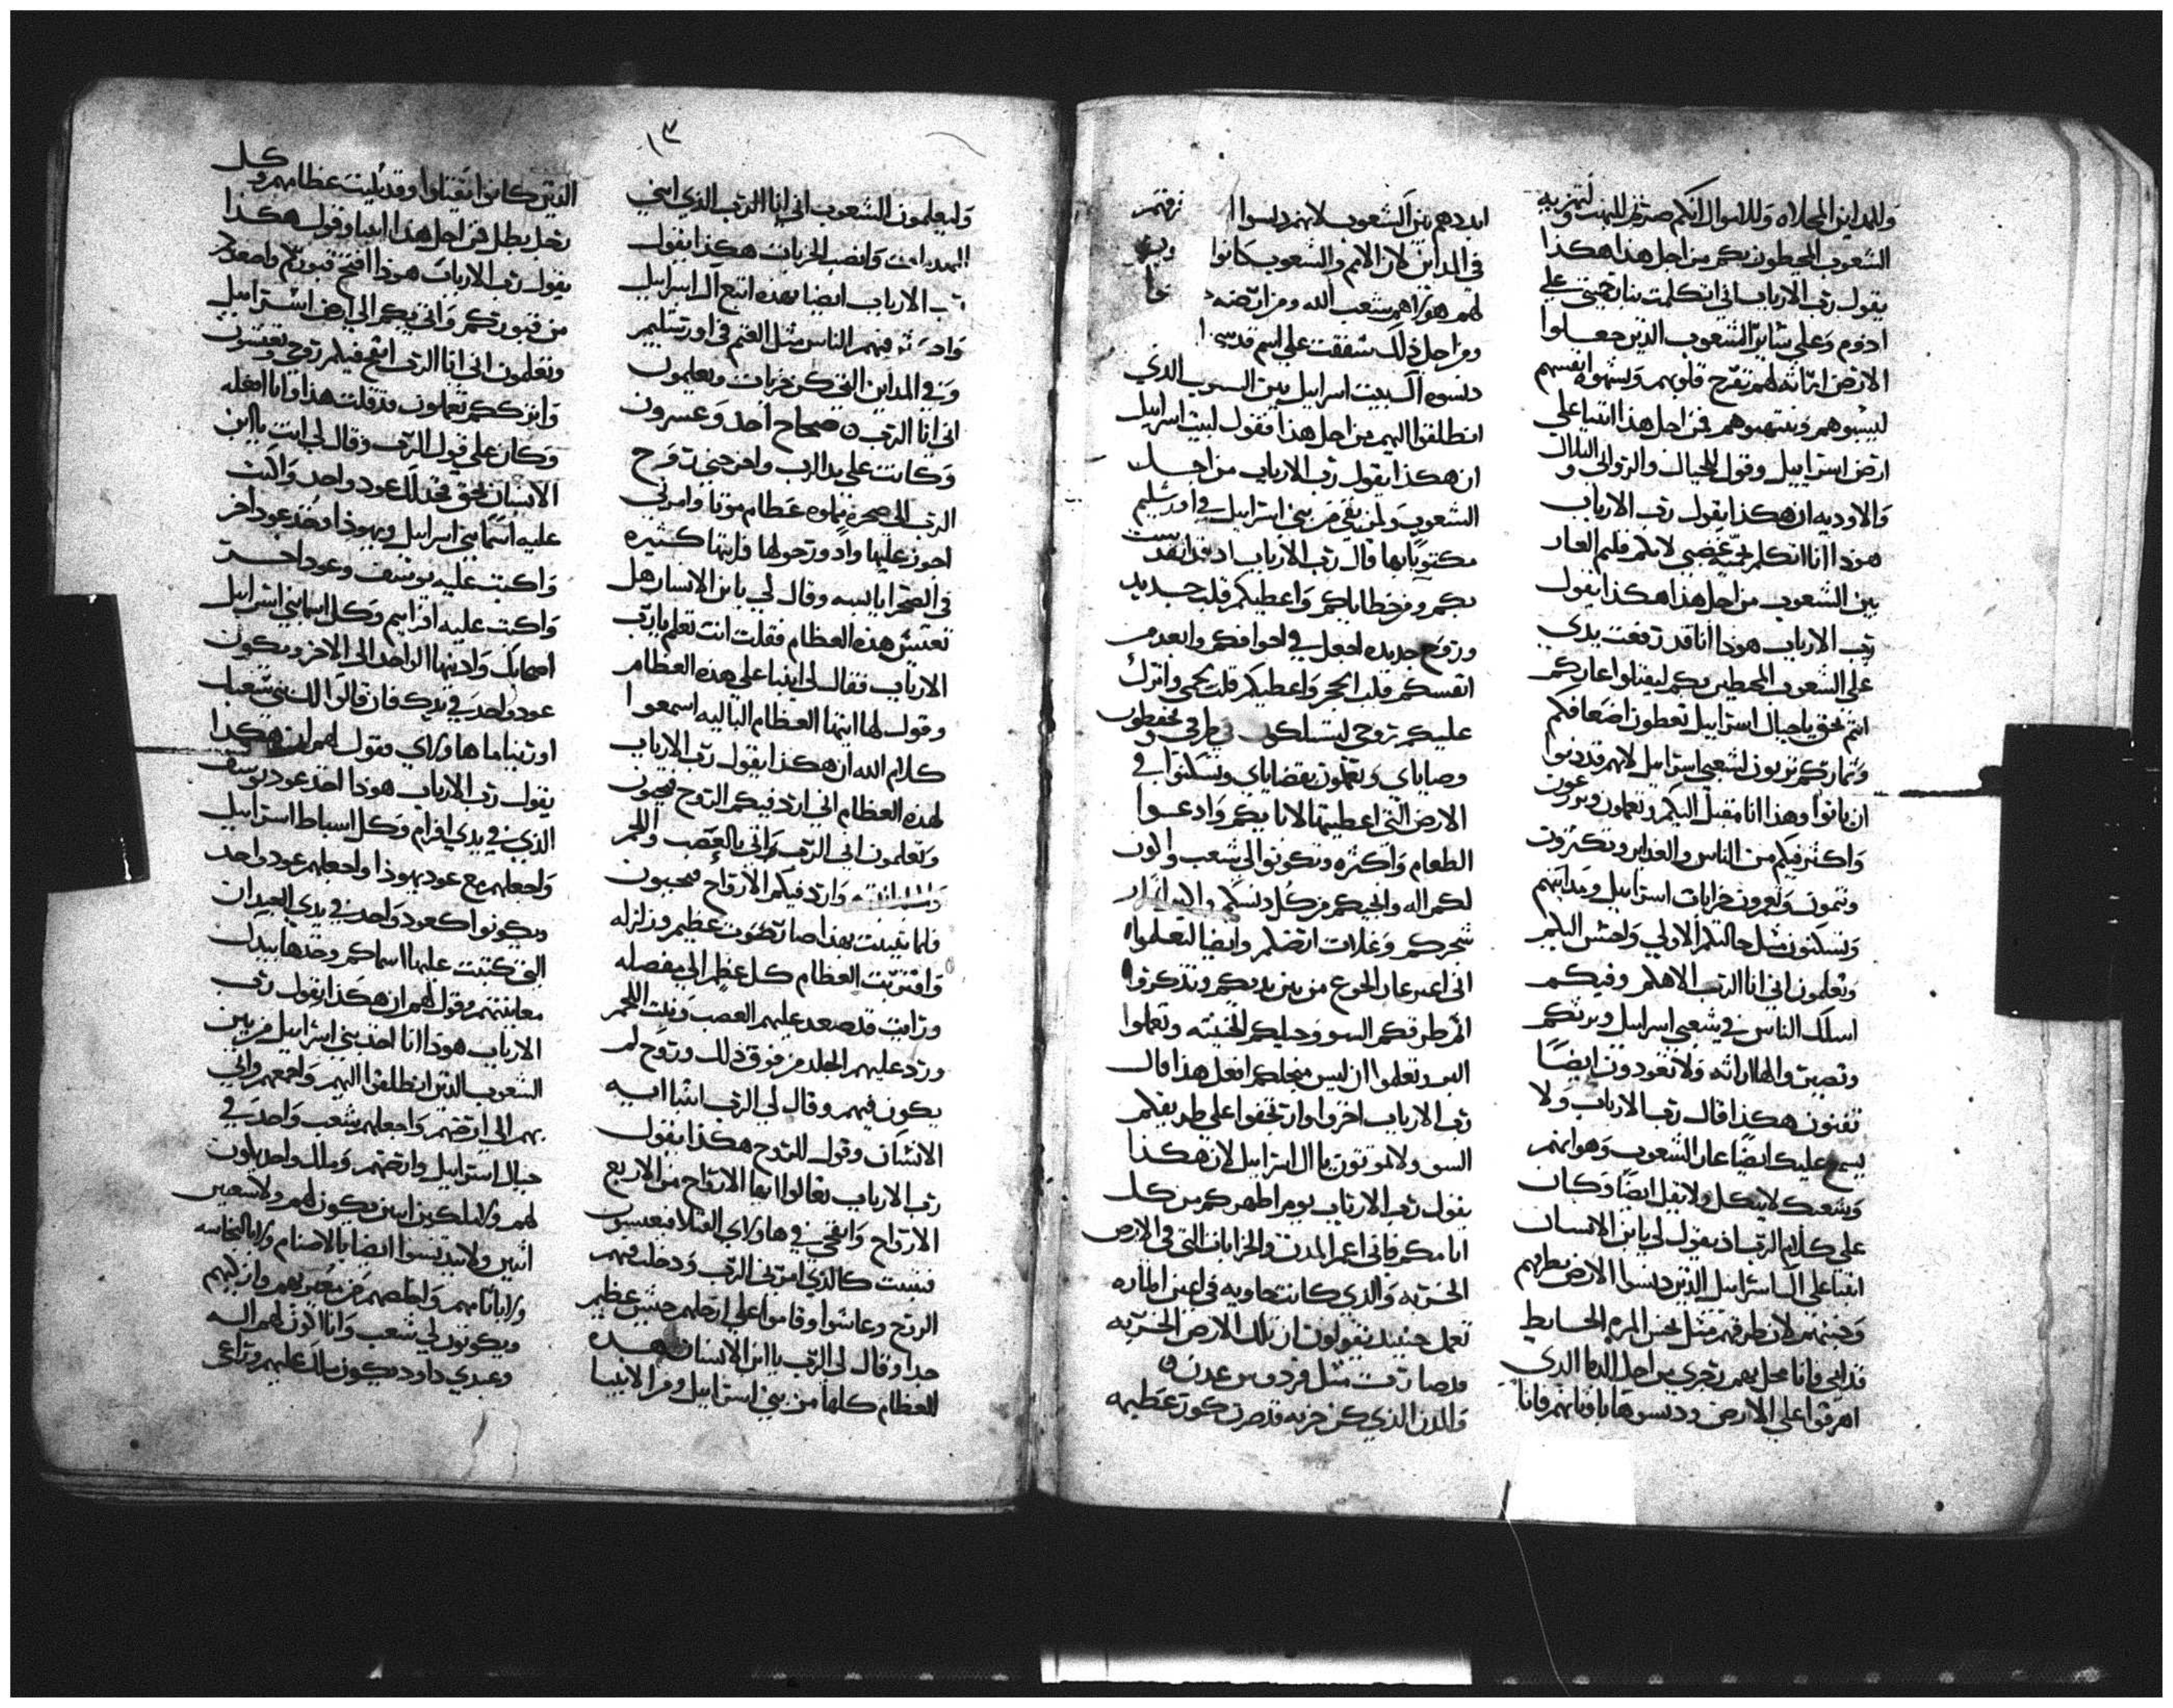 وللمداين المخلاه وللاسوال انكم صرتم للنهب ولتعزيه
الشعوب المحيطون بكم من اجل هذا هكذا
يقول رب الارباب اني انكلمت بنار حميتي علي
ادوم وعلي سائر الشعوب الذين جعلوا
الارض اراثه لهم بفرح قلوبهم وبشهوه انفسهم
ليسبوهم وينتهبوهم فمن اجل هذا اتنبا علي
ارض اسراييل وقول للجبال والروابي والتلال
والاوديه ان هكذا يقول رب الارباب
هوذا انا اتكلم بحميه غضبي لانكم قبلتم العار
بين الشعوب من اجل هذا هكذا يقول
رب الارباب هوذا انا قد رفعت يدي
علي الشعوب المحيطين بكم ليقبلوا عاركم
انتم بحق يا جبال اسراييل تعطون اضعافكم
وثماركم تربون لشعبي اسراييل لانهم قد دنوا
ان ياتوا وهذا انا مقبل اليكم وتعملون وتزرعون
واكثر فيكم من الناس والغداير وتكثرون
وتنمون وتعمرون خرابات اسراييل ومداينهم
وتسكنون مثل حالتكم الاولي واحسن اليكم
وتعلمون اني انا الرب الاهكم وفيكم
اسلك الناس في شعبي اسراييل ويرثكم
وتصيرون لهم اراثه ولا تعودون ايضا
تفنون هكذا قال رب الارباب ولا
يسمع عليك ايضا عار الشعوب وهوانهم
وشعبك لا يثكل ولا يقل ايضا وكان
علي كلام الرب اذ يقول لي يا ابن الانسان
اتنبا علي ال اسراييل الذين دنسوا الارض بطرقهم
وبخبثهم لان طرقهم مثل نجس المره الحايط
قدامي وانا محل بهم رجزي من اجل الدما الذي
اهرقوا علي الارض ودنسوها باوثانهم فانا
ابددهم بين الشعوب لانهم دنسوا
في المداين لان الامم والشعوب كانوا
لهم هولاهم شعب الله ومن ارضه
ومن اجل ذلك شفقت علي اسم قدسي
دنسوه ال بيت اسراييل بين الشعوب الذي
انطلقوا اليهم من اجل هذا فقول لبيت اسراييل
ان هكذا يقول رب الارباب من اجل
الشعوب ولمن بقي من بني اسراييل في اورشليم
مكتوبا بها قال رب الارباب اذ قد انقدست
بكم ومن خطاياكم واعطيكم قلب جديد
وروح جديده اجعل في اجوافكم وابعد من
انفسكم قلب الحجر واعطيكم قلب لحمي وانزل
عليكم روحي لتسلكون في طرقي وتحفظون
وصاياي وتعملون بقضاياي وتسكنوا في
الارض التي اعطيتها لابايكم وادعوا
الطعام واكثره وتكونوا لي شعب واكون
لكم اله وانجيكم من كل دنسكم
شجركم وغلات ارضكم وايضا لتعلموا
اني اعبر عار الجوع من بين يديكم وتذكروا
طرقكم السو وحيلكم الخبيثه وتعلموا
اليوم وتعلموا ان ليس من اجلكم افعل هذا قال
رب الارباب اخزوا وارتجفوا علي طريقكم
السو ولا تموتون يا ال اسراييل لان هكذا
يقول رب الارباب يوم اطهركم من كل
اثامكم فاني اعمر المدن والخرابات التي في الارض
الخربه والذي كانت خاويه في اعين الماره
تعمل حينيذ يقولون ان تلك الارض الخربه
قد صارت مثل فردوس عدن
والمدن الذي كن خربه قد صرن كور عظيمه
١٣
وليعلمون الشعوب اني انا الرب الذي ابني
المهدمات وانصب الخربات هكذا يقول
رب الارباب ايضا بهذه اتبع ال اسراييل
فيهم الناس مثل الغنم في اورشليم
وفي المداين التي كن خربات ويعلمون
اني انا الرب صحاح احد وعشرون
وكانت علي يد الرب واخرجني بروح
الرب الي صحره مملوه عظام موتا وامرني
اجوز عليها وادور حولها فرايتها كثيره
في الصحرا يابسه وقال لي يا بن الانسان هل
تعيش هذه العظام فقلت انت تعلم يا رب
الارباب فقال لي اتنبا علي هذه العظام
وقول لها ايتها العظام الباليه اسمعوا
كلام الله ان هكذا يقول رب الارباب
لهذه العظام اني ارد فيكم الروح فتحيون
وتعلمون اني الرب واتي بالعصب واللحم
وارد فيكم الارواح فتحيون
فلما تنبيت بهذا صار صوت عظيم وزلزله
واقتربت العظام كل عظم الي مفصله
ورايت قد صعد عليهم العصب ونبت اللحم
ورد عليهم الجلد من فوق ذلك وروح لم
يكون فيهم وقال لي الرب اتنبا ايه
الانسان وقول للروح هكذا يقول
رب الارباب تعالوا ايها الارواح من الاربع
الارواح وانفخي في هاولاي القتلا فيعيشون
فنبيت كالذي امرني الرب ودخلت فيهم
الروح وعاشوا وقاموا علي ارجلهم جيش عظيم
جدا وقال لي الرب يا ابن الانسان هذه
العظام كلها من بني اسراييل ومن الانبيا
الذين كانوا يقتلوا وقد بليت عظامهم وكل
رجل بطل فمن اجل هذا اتنبا وقول هكذا
يقول رب الارباب هوذا انا افتح قبوركم واصعدكم
من قبوركم واتي بكم الي ارض اسراييل
وتعلمون اني انا الرب انفخ فيكم روحي وتعيشون
واترككم تعلمون قد قلت هذا وانا افعله
وكان علي قول الرب وقال لي انت يا ابن
الانسان بحق فخذ لك عود واحد واكتب
عليه اسما بني اسراييل ويهوذا وخذ عود اخر
واكتب عليه يوسف وعود اخر
واكتب عليه افرايم وكل اسما بني اسراييل
اصحابك وادنيها الواحد الي الاخر ويكون
عود واحد في يدك فان قالوا لك بني شعبك
اورينا ما هاولاي فقول لهم ان هكذا
يقول رب الارباب هوذا اخذ عود يوسف
الذي في يدي افرام وكل اسباط اسراييل
واجعلهم مع عود يهوذا واجعلهم عود واحد
ويكونوا كعود واحد في يدي العيدان
التي كتبت عليها اسماكم وخذها بيدك
معاينتهم وقول لهم ان هكذا يقول رب
الارباب هوذا انا اخذ بني اسراييل من بين
الشعوب الذين انطلقوا اليهم واجمعهم واتي
بهم الي ارضهم واجعلهم شعب واحد في
جبال اسراييل وارضهم وملك واحد يكون
لهم ولا ملكين اثنين يكون لهم ولا شعبين
اثنين ولا يتدنسوا ايضا بالاصنام ولا بالنجاسه
ولا باثامهم واخلصهم من ذنوبهم وازكيهم
ويكونون لي شعب وانا اكون لهم اله
وعبدي داود يكون ملك عليهم وراعي